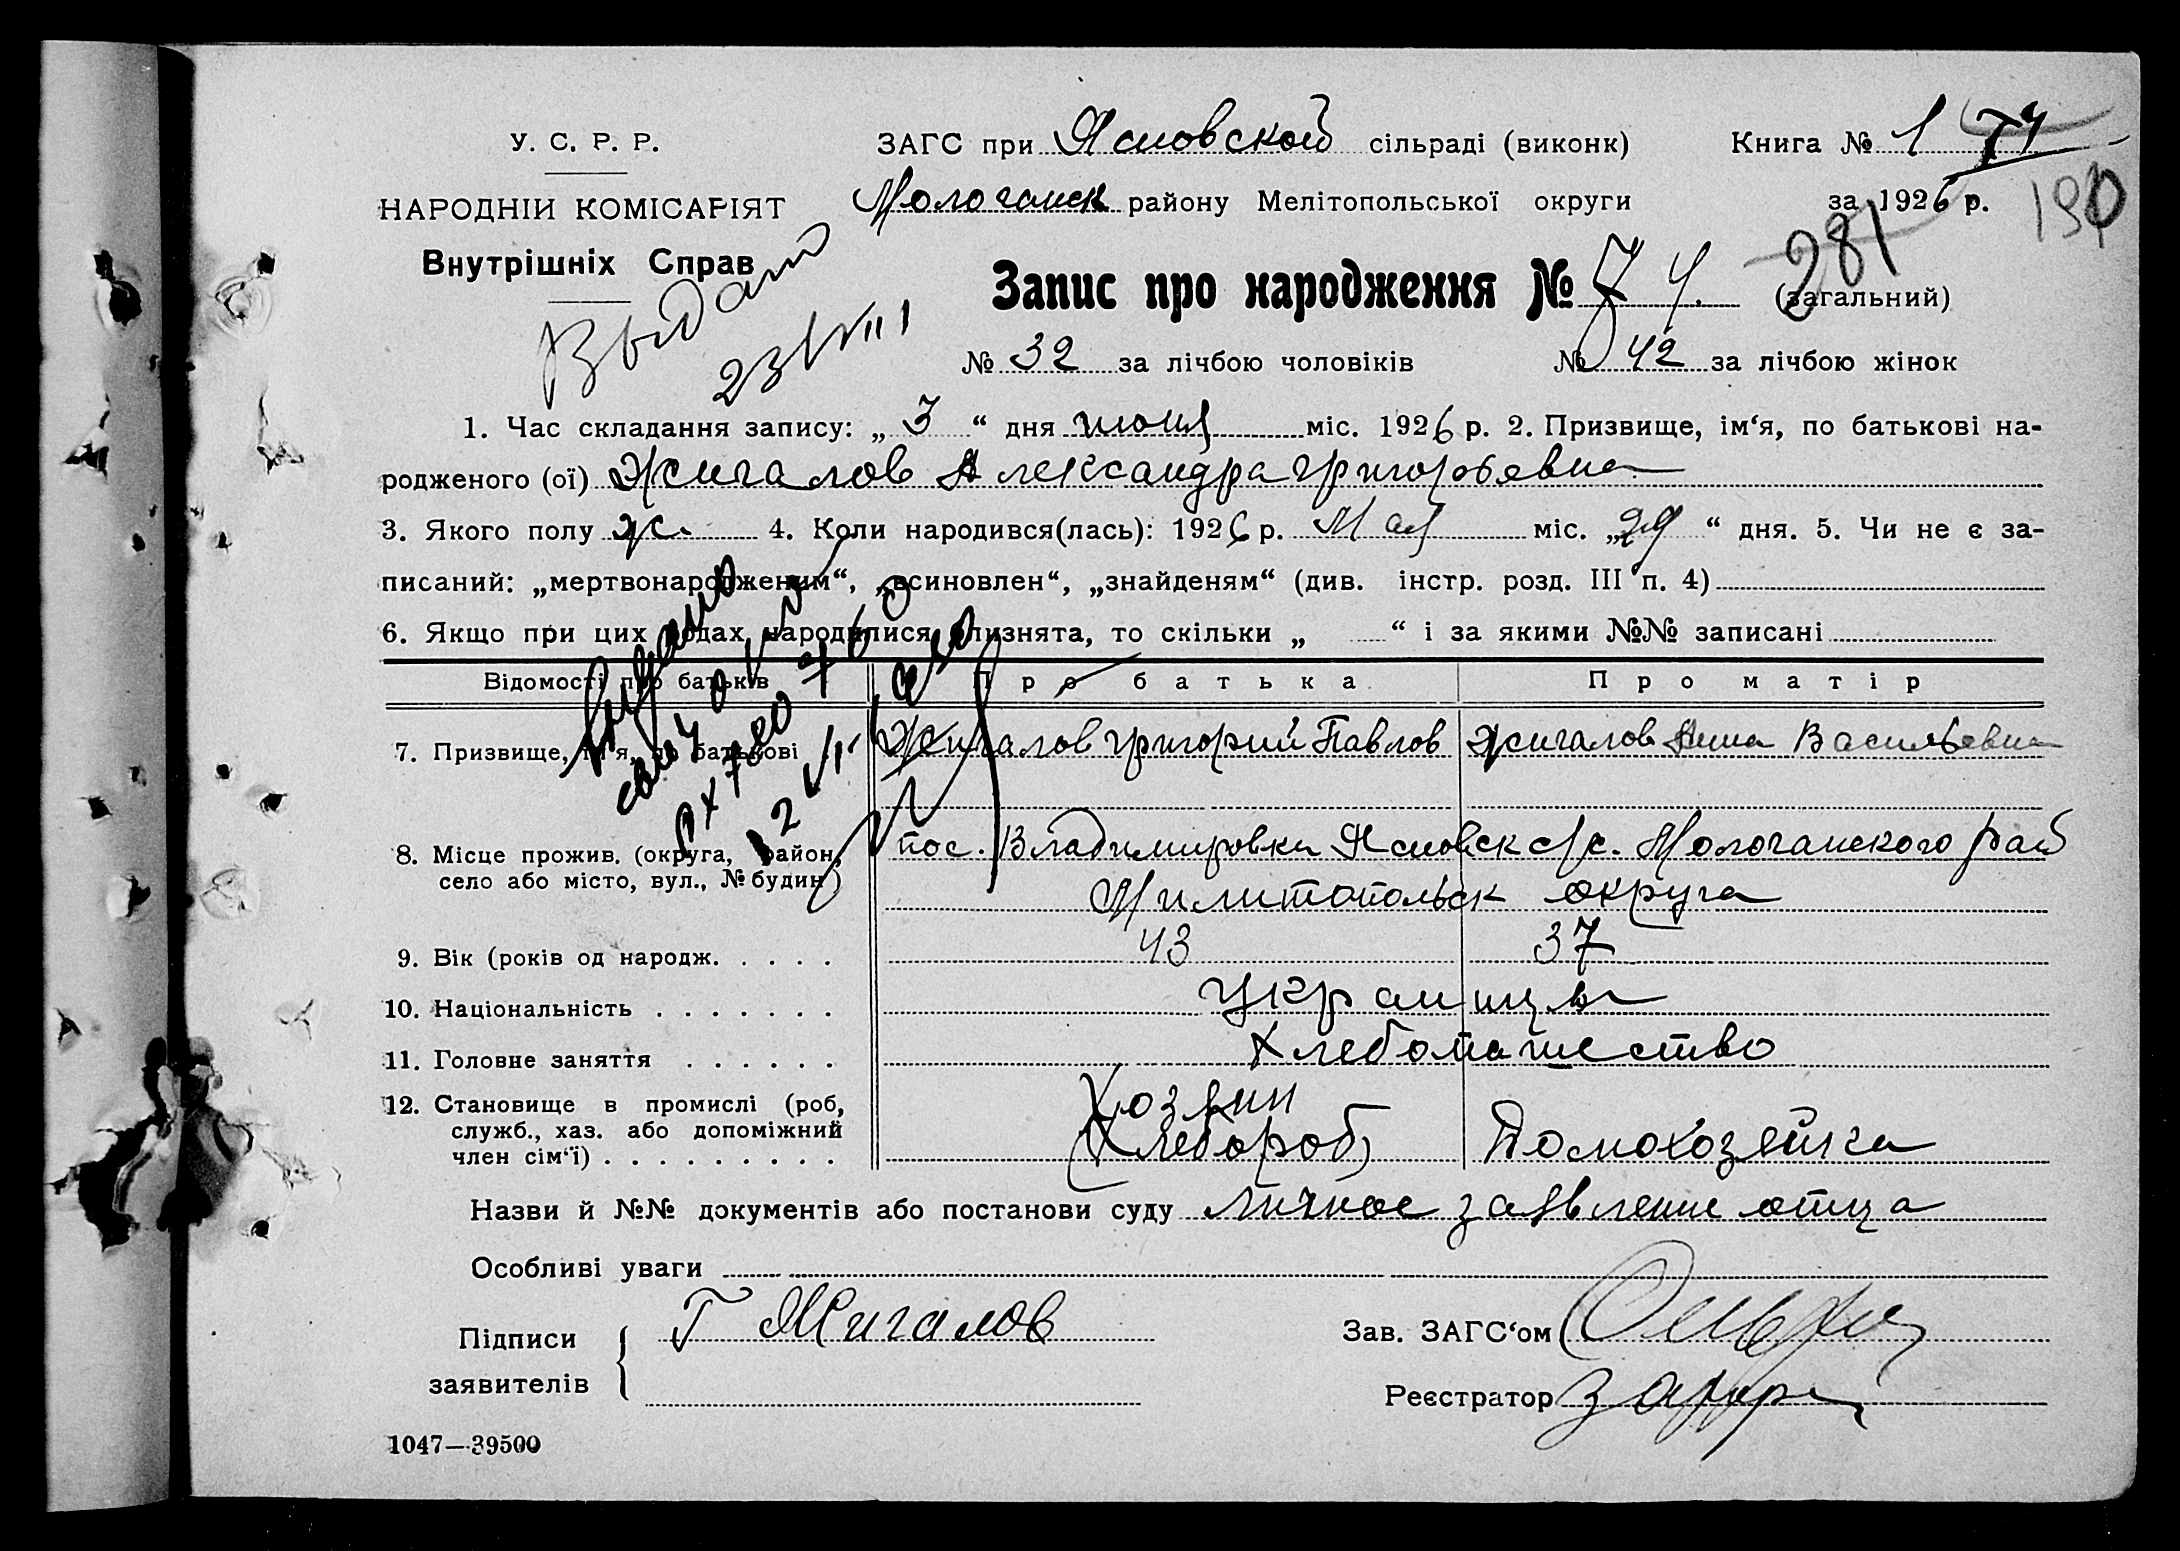 У. С. Р. Р.
НАРОДНІЙ КОМІСАРІЯТ
Внутрішніх Справ
ЗАГС при Ясновской сільраді (виконк)
Молочанск району Мелітопольської округи
Книга № 1 74
за 1926 р.
190
281
Запис про народження № 74. (загальний)
№ 32 за лічбою чоловіків № 42 за лічбою жінок
Выдано
23/VIII
1. Час складання запису: „ 3 “ дня июня міс. 1926 р. 2. Призвище, ім‘я, по батькові на-
родженого (ої) Жигалов Александра Григорьевна
3. Якого полу ж. 4. Коли народився(лась): 1926 р. Мая міс. „29 “ дня. 5. Чи не є за-
писаний: „мертвонародженим“, „всиновлен“, „знайденям“ (див. інстр. розд. III п. 4)
6. Якщо при цих родах народилися близнята, то скільки „ “ і за якими №№ записані
Выдано
Відомості про батьків Про батька Про матір
7. Призвище, ім‘я, по батькові Жигалов Григорий Павлов Жигалов Анна Васильевна
8. Місце прожив. (округа, район,
село або місто, вул., № будин)
пос. Владимировки Ясновск с/с. Молочанского рай
Милитопольск округа
9. Вік (років од народж. . . . . 43 37
10. Національність . . . . . . . Украинцы
11. Головне заняття . . . . . . Хлебопашество
12. Становище в промислі (роб,
служб., хаз. або допоміжний
член сім‘ї) . . . . . . . . .
Хозяин
(Хлебороб) Домохозяйка
Назви й №№ документів або постанови суду личное заявление отца
Особливі уваги
Підписи
заявителів
Г Жигалов
Зав. ЗАГС‘ом
Реєстратор
1047—39500